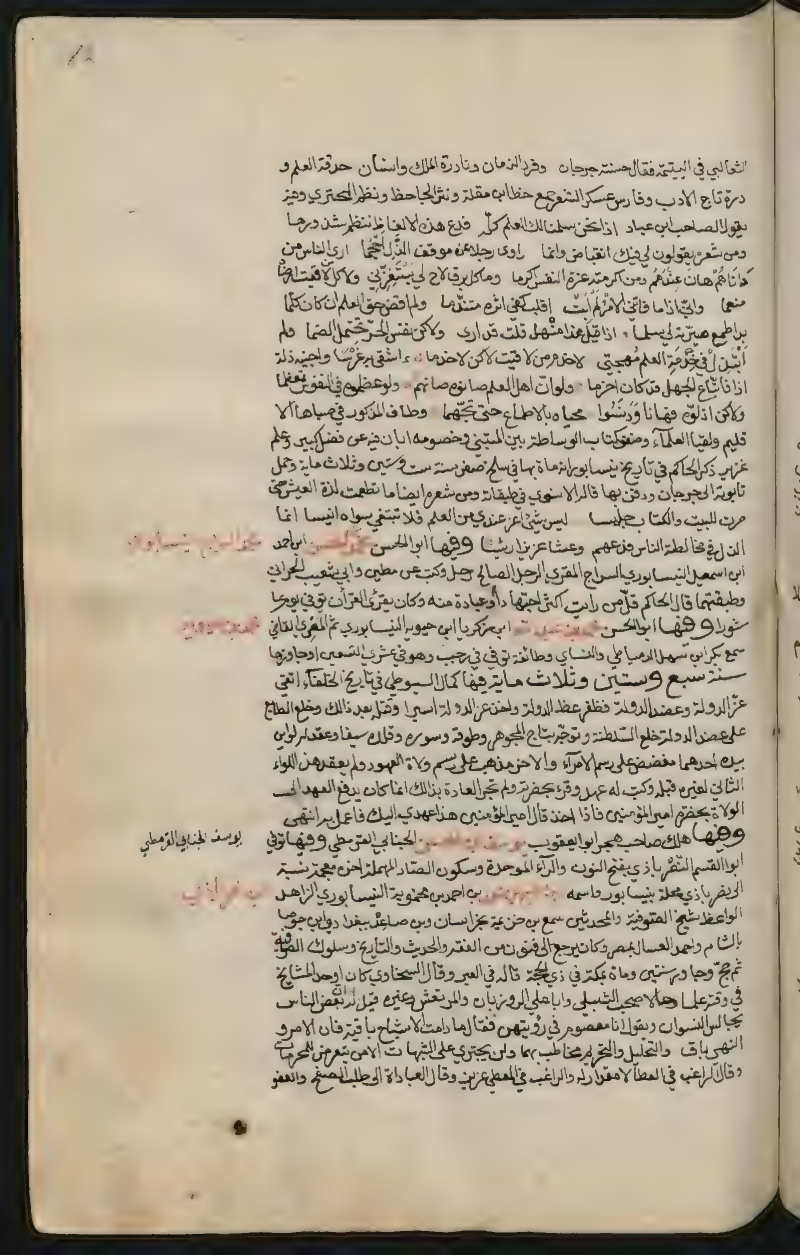 الثعالبي في اليتيمة فقال حسنة جرجان وفرد الزمان ونادرة الملك وانسان حدقة العلم و
درة تاج الادب وفارس عسكر الشعر جمع خط ابن مقلة ونثر الجاحظ ونظم البحتري وفيه
يقول الصاحب ابن عباد اذا نحن سلمنا لك العلم كله فدع هذه الالفاظ ننظم شذورها
ومن شعره يقولون لي فيك انقباض وانما راوا رجلا عن موقف الذل احجما ارى الناس من
داناهم هان عندهم ومن اكرمته عزة النفس اكرما وما كل برق لاح لي يستفزني ولا كل لاقيت ارضاه
منعما واني اذا ما فاتني الامر لم ابت اقلب كفي اثره متندما ولم اقض حق العلم ان كان كلما
بدا طمع صيرته لي سلما اذا قيل هذا منهل قلت قد ارى ولاكن نفس الحر تحتمل الضما ولم
ابتذل في خدمة العلم مهجتي لاخدم من لاقيت لاكن لاخدما أاشقى به غرسا واجنيه ذلة
اذا فاتباع الجهل قد كان احزما ولو ان اهل العلم صانوه صانهم ولو عظموه في النفوس تعظما
ولاكن اذلوه فهانا ودنسوا محياه بالاطماع حتى تجهما وطاف المذكور في صباه الا
قليم ولقيا العلماء وصنف كتاب الوساطة بين المتنبي وخصومه ابان فيه عن فضل كبير وعلم
غزير ذكر الحاكم في تاريخ نيسابور انه مات بها في سلخ صفر سنة ست وستين وثلاث ماية وحمل
تابوته الى جرجان ودفن بها قاله الاسنوي في طبقاته ومن شعره ايضا ما تطعمت لذة العيش حتى
صرت للبيت والكتاب جليسا ليس شئ اعز عندي من العلم فلا تبتغي سواه انيسا انما
الذل في مخالطة الناس فدعهم وعش عزيزا رئيسا وفيها ابو الحسن محمد بن الحسن ابن احمد
ابن اسمعيل النيسابوري السراج المقري الرجل الصالح رحل وكتب عن مطين وابي شعيب الحراني
وطبقتهما قال الحاكم قل من رايت اكثر اجتهادا وعبادة منه وكان يقرئ القرآن توفي يوم عا
شورا وفيها ابو الحسن محمد بن عبد الله ابن زكريا ابن حيويه النيسابوري ثم المصري القاضي
سمع بكر ابن سهل الدمياطي والنساي وطائفة توفي في رجب وهو في عشر التسعين او جاوزها
سنة سبع وستين وثلاث ماية فيها كما قال السيوطي في تاريخ الخلفاء التقى
عز الدولة وعضد الدولة فظفر عضد الدولة واخذ عز الدولة اسيرا وقتله بعد ذالك وخلع الطائع
على عضد الدولة خلع السلطنة وتوجه بتاج المجوهر وطوقه وسوره وقلده سيفا وعقد له لواين
بيده احدهما مفضض على رسم الامرآء والاخر مذهب على رسم ولاة العهود ولم يعقد هذا اللواء
الثاني لغيره قبله وكتب له عهد وقرئ بحضرته ولم تجر العادة بذالك انما كان يدفع العهد الى
الولاة بحضرة امير المؤمنين فاذا اخذه قال امير المؤمنين هذا عهدي اليك فاعمل به انتهى
وفيها هلك صاحب هجر ابو يعقوب يوسف ابن الحسن الجنابي القرمطي وفيها توفي
يوسف الجنابي القرمطي
ابو القسم النصراباذي بفتح النون والرآء الموحدة وسكون الصاد المهملة اخره معجمة نسبة
الى نصراباذ محلة بنيسابور واسمه بن احمد بن محمويه النيسابوري الزاهد
الواعظ شيخ الصوفية والمحدثين سمع بن خزيمة بخراسان وبن صاعد ببغداد وابن جوصا
بالشام واحمد العسال بمصر وكان يرجع الى فنون من الفقه والحديث والتاريخ وسلوك الصوفية
ثم حج وجاور سنتين ومات بمكة في ذي الحجة قاله في العبر وقال السخاوي كان اوحد المشايخ
في وقته علما وحالا صحب الشبلي وابا علي الروزبان والمرتعش وغيره قيل له ان بعض الناس
يجالس النسوان ويقول انا معصوم في رؤيتهن فقال ما دامت الاشباح باقية فان الامر و
النهي باق والتحليل والتحريم مخاطب بهما ولن يجتري على الشبهات الا من يتعرض للمحرمات
وقال الراغب في العطا لا مقدار له والراغب في المعطي عزيز وقال العبادة الى طلب الصفح والعفو